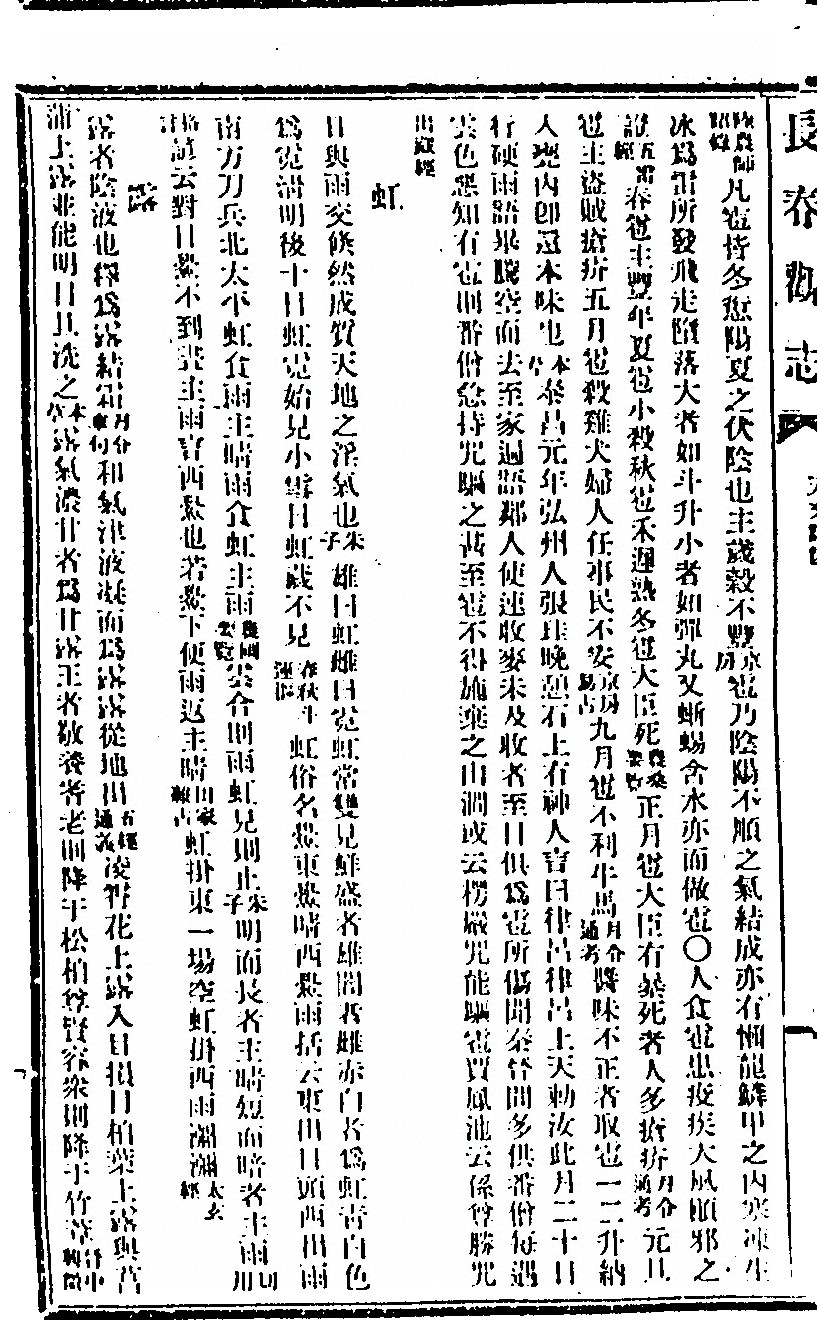 長春觀志
凡雹持冬愆陽夏之伏陰也主歲穀不豐京房雹乃陰陽不順之氣結成亦有懶龍鱗甲之內寒凍生
冰爲雷所發飛走墮落大者如斗升小者如彈丸又蜥蜴含水亦而做雹〇人食雹患疫疾大風顛邪之
證五雷經春雹主豐年夏雹小殺秋雹禾遲熟冬雹大臣死農桑要覽正月雹大臣有暴死者人多瘡疥月令通考元旦
雹主盜賊瘡疥五月雹殺雞犬婦人任事民不安京房易占九月雹不利牛馬月令通考醬味不正者取雹一二升納
入甕內卽還本味也本艸泰昌元年弘州人張珪晚憩石上有神人言曰律呂律呂上天勅汝此月二十日
行硬雨語畢騰空而去至家遍語鄰人使速收麥未及收者至日俱爲雹所傷聞秦晉間多供番僧每遇
雲色惡知有雹則番僧急持咒驅之甚至雹不得施棄之山澗或云楞嚴咒能驅雹買風池云係尊勝咒
出藏經
虹
日與雨交倏然成質天地之淫氣也朱子雄曰虹雌曰霓虹常雙見鮮盛者雄闇者雌赤白者爲虹青白色
爲霓清明後十日虹霓始見小雪日虹藏不見春秋斗運樞虹俗名鱟東鱟晴西鱟雨括云東出日頭西出雨
南方刀兵北太平虹食雨主晴雨食虹主雨雲合則雨虹見則止朱子明而長者主晴短而暗者主雨
云對日鱟不到晝主雨言西鱟也若鱟下便雨返主晴田家雜占虹掛東一場空虹掛西雨瀰瀰太玄經
露
露者陰液也釋爲露結霜和氣津液凝而爲露露從地出五經通義凌霄花上露入目損目柏葉上露與菖
蒲上露並能明目旦洗之本艸露氣濃甘者爲甘露王者敬養耆老則降于松柏尊賢容衆則降于竹葦